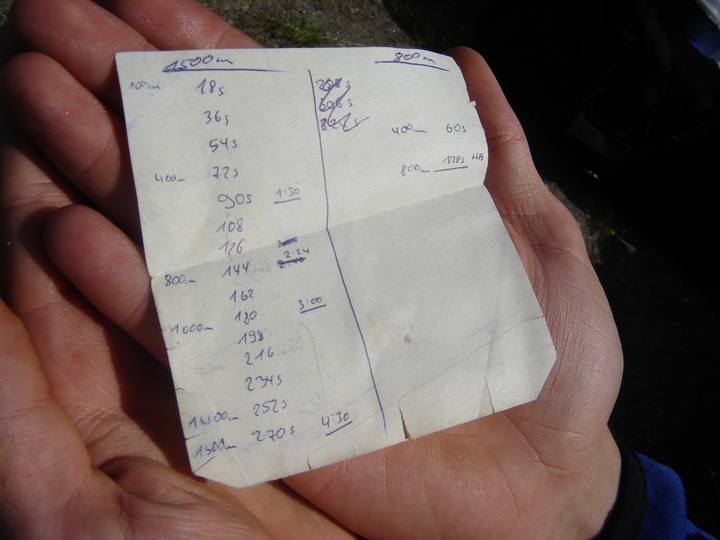 1500m
100m 18s
36s
54s
400m 72s
90s 1:30
108
126
800m 144 2:24
162
1000m 180 3:00
198
216
234s
1400m 252s
1500m 270s 4:30
800m
400m 60s
800m